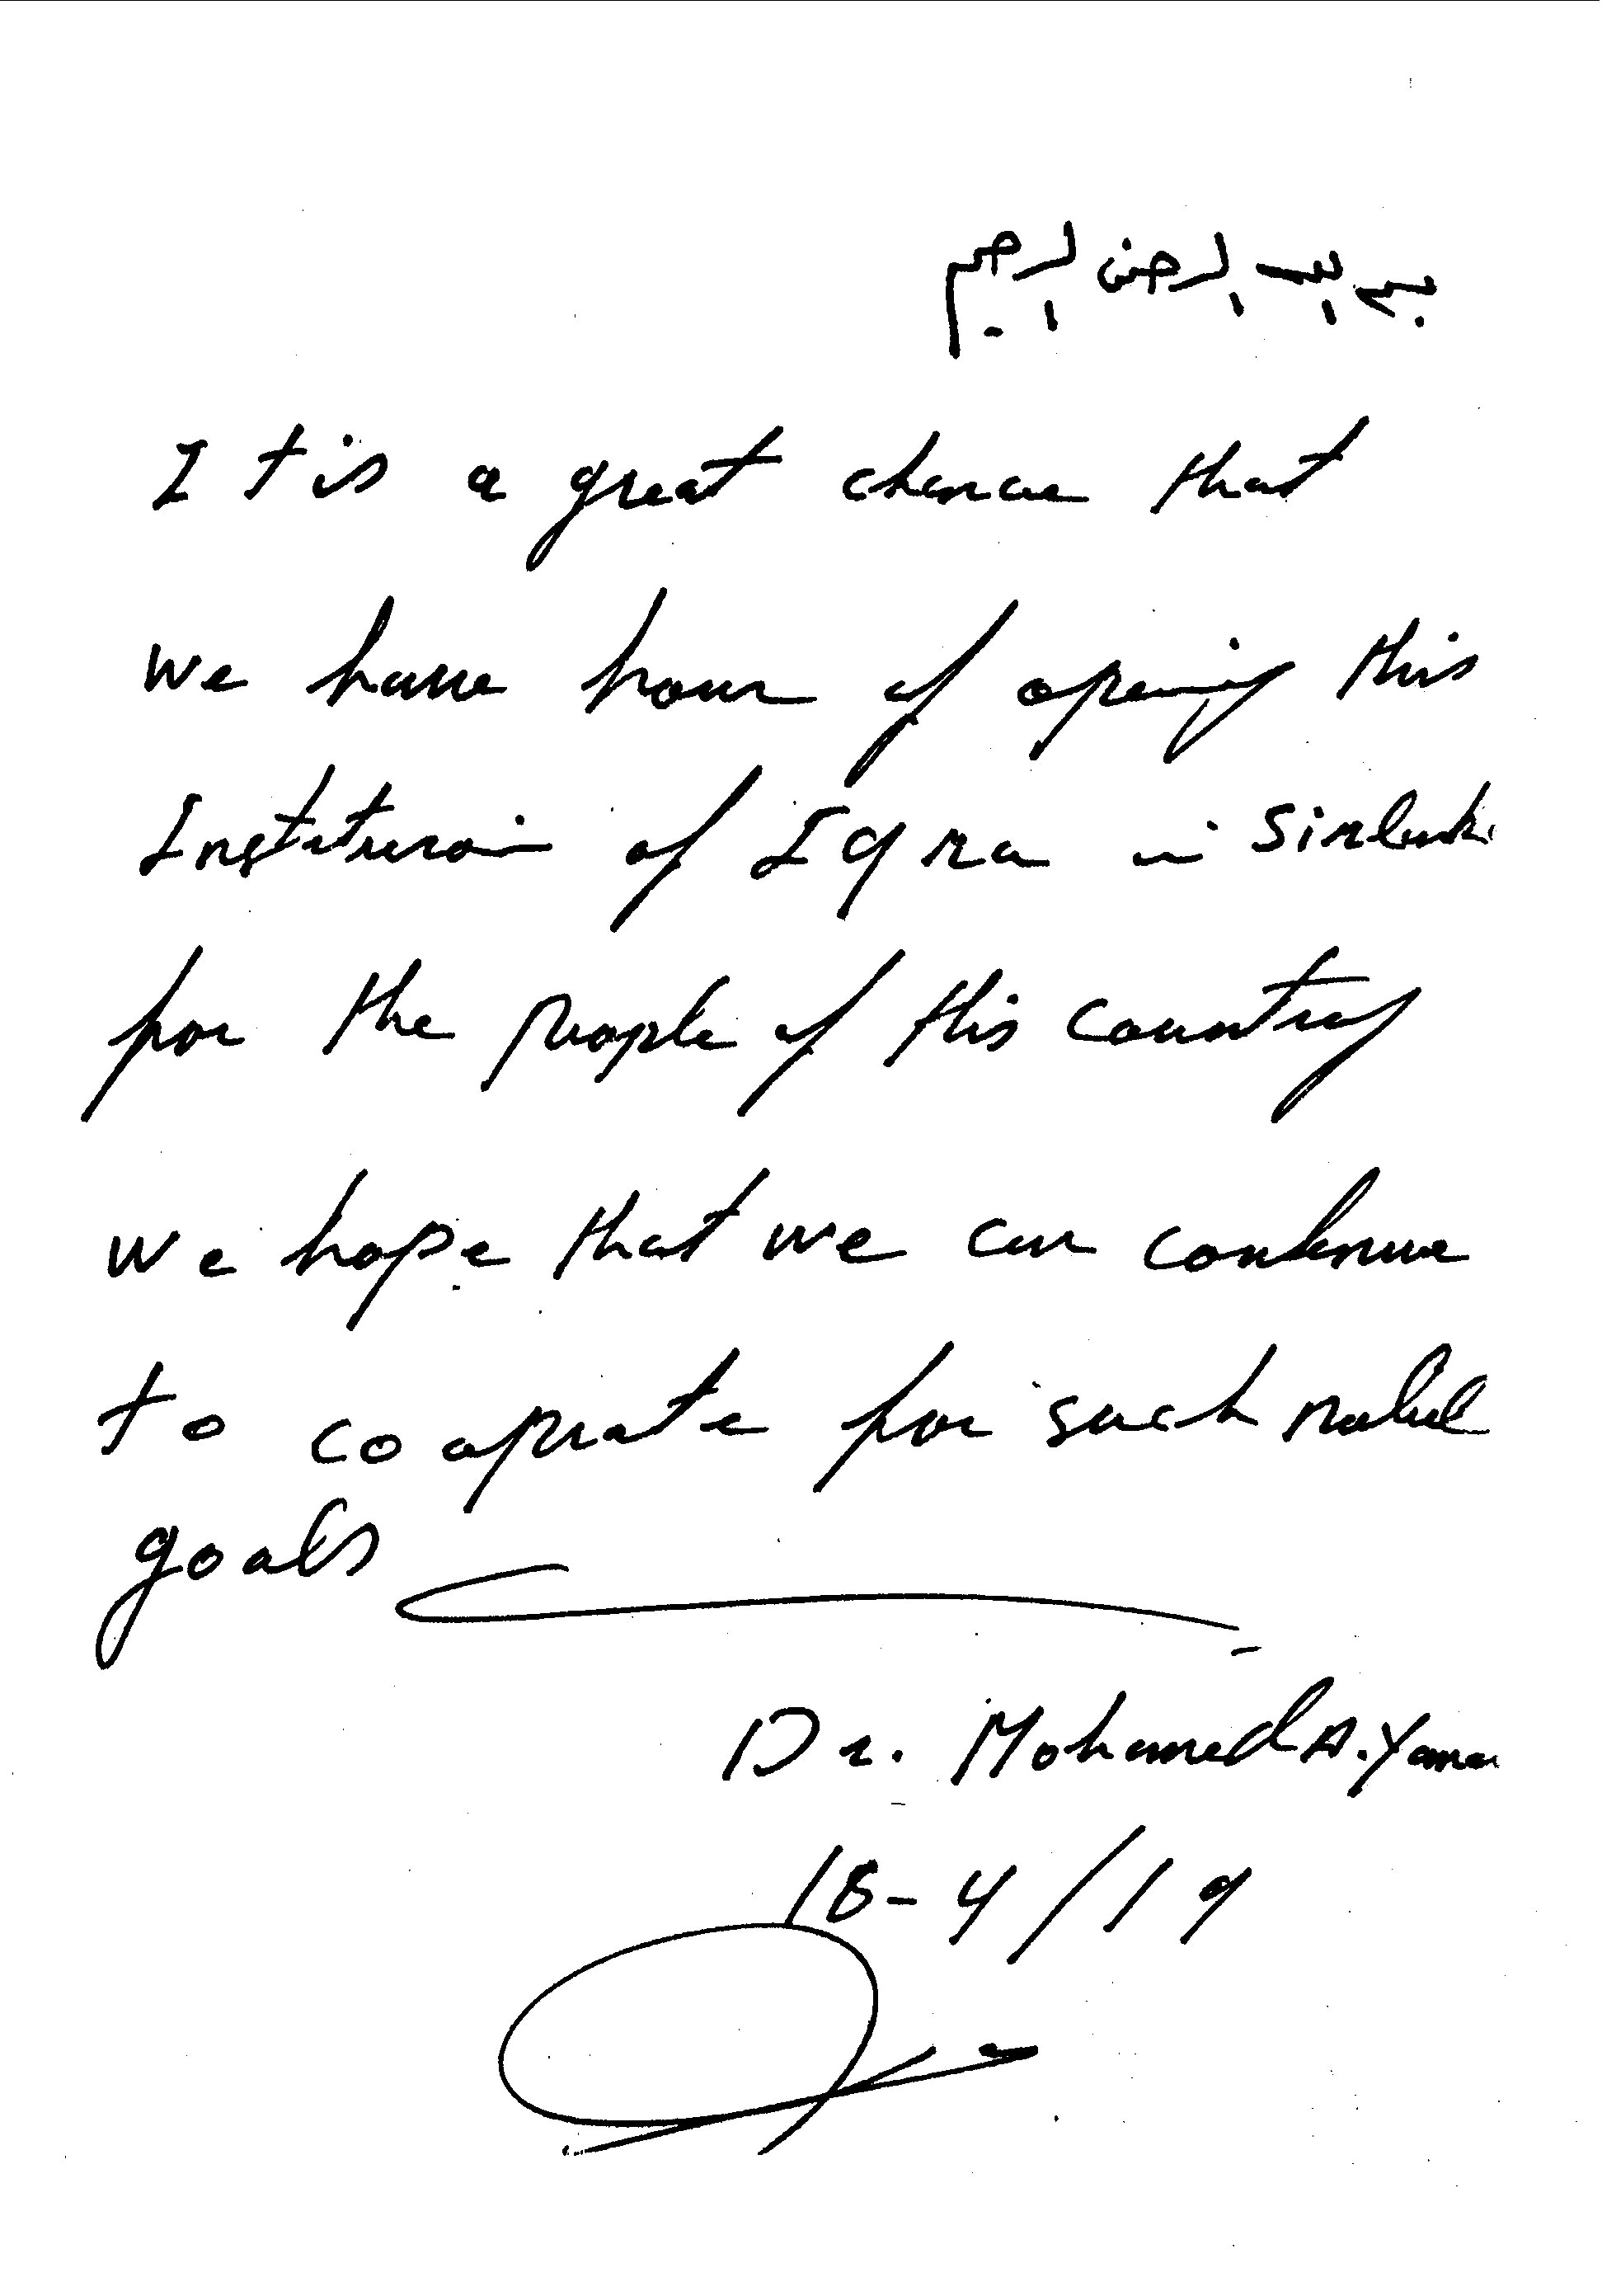 بسم الله الرحمن الرحيم
It is a great chance that
we have honor of opening this
Institution of Iqra in
for the people of this country
we hope that we can continue
to cooperate for such nobel
goals
Dr. Mohamed A. Yama
18-4/19